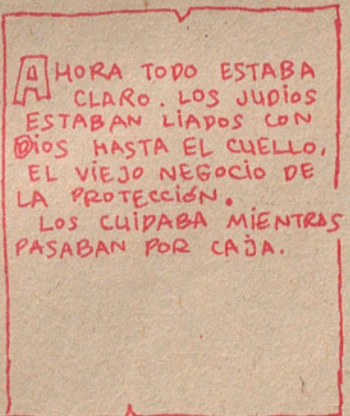 AHORA TODO ESTABA
CLARO. LOS JUDíOS
ESTABAN LIADOS CON
DIOS HASTA EL CUELLO,
EL VIEJO NEGOCIO DE
LA PROTECCIÓN.
LOS CUIDABA MIENTRAS
PASABAN POR CAJA.